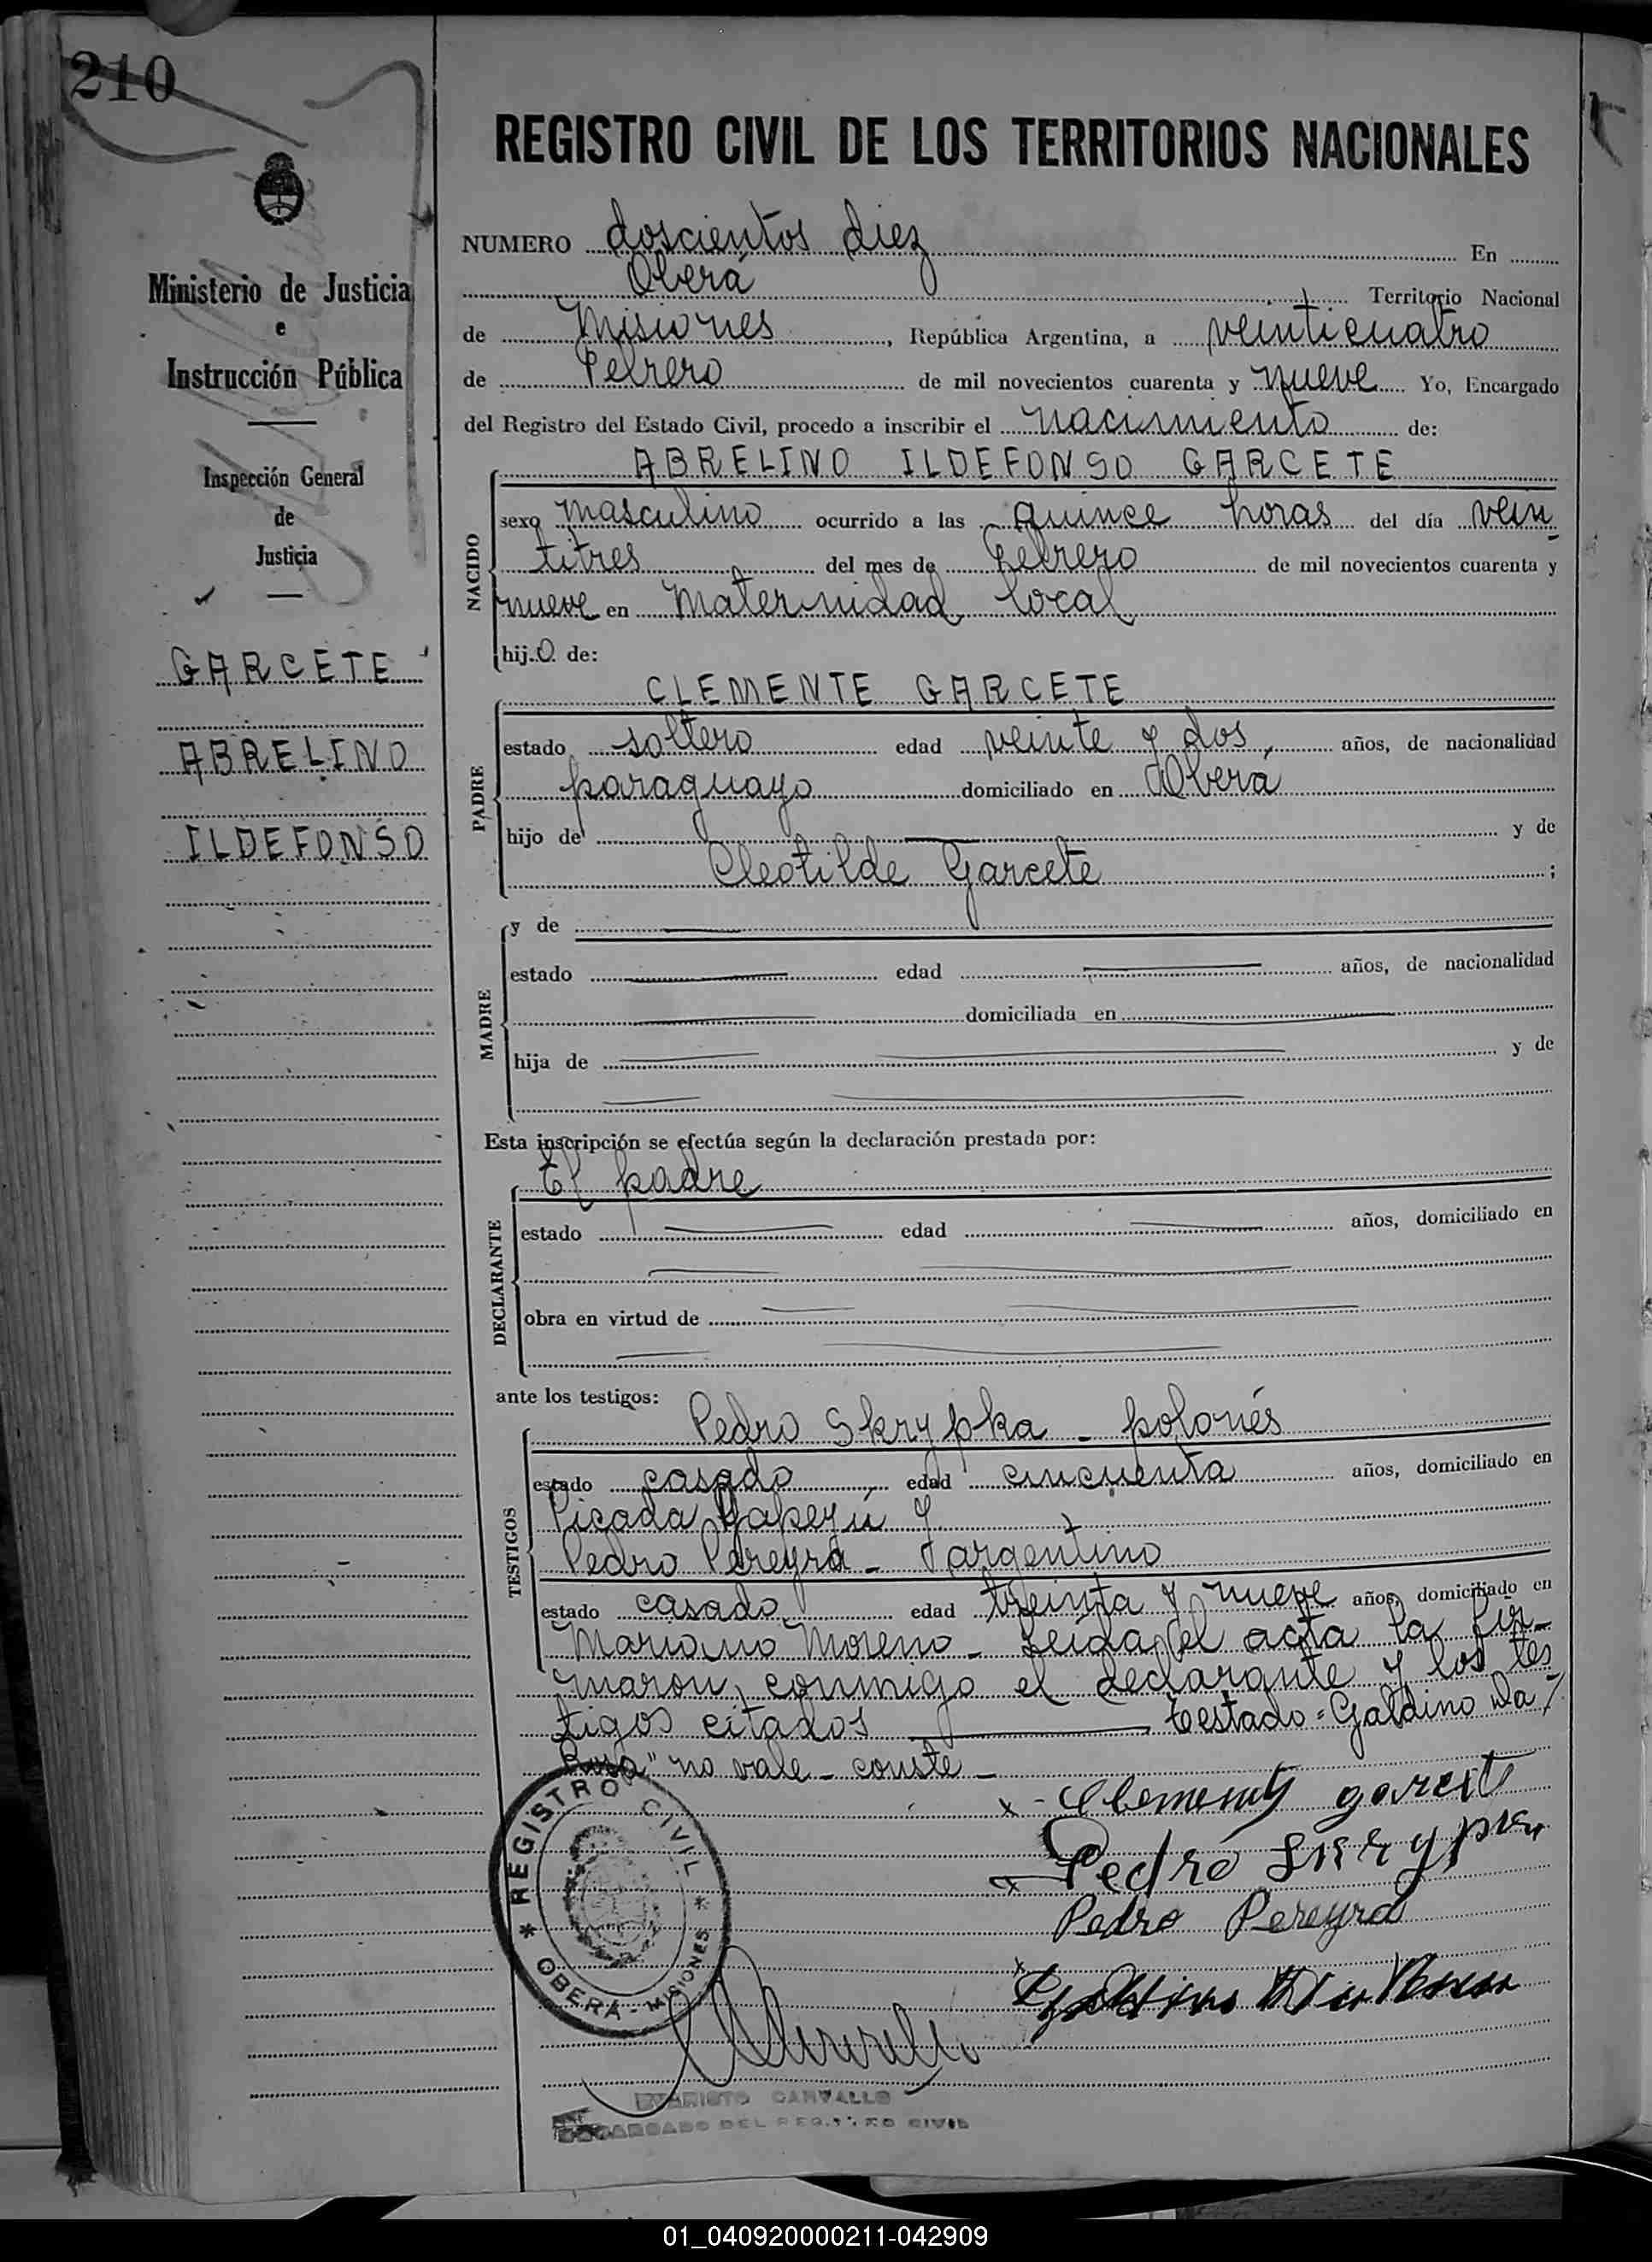 210
Ministerio de Justicia
e
Instrucción Pública
Inspección General
de
Justicia
GARCETE
ABRELINO
ILDEFONSO
REGISTRO CIVIL DE LOS TERRITORIOS NACIONALES
NUMERO doscientos diez En
Oberá Territorio Nacional
de Misiones, República Argentina, a veinticuatro
de Febrero de mil novecientos cuarenta y nueve Yo, Encargado
del Registro del Estado Civil, procedo a inscribir el nacimiento de:
NACIDO
ABRELINO ILDEFONSO GARCETE
sexo masculino ocurrido a las quince horas del día vein
titres del mes de Febrero de mil novecientos cuarenta y
nueve en Maternidad local
hijo de:
PADRE
CLEMENTE GARCETE
estado soltero edad veinte y dos, años, de nacionalidad
paraguayo domiciliado en Oberá
hijo de y de
Cleotilde Garcete ;
MADRE
y de
estado edad años, de nacionalidad
domiciliada en
hija de y de
Esta inscripción se efectúa según la declaración prestada por:
DECLARANTE
El padre
estado edad años, domiciliado en
obra en virtud de
ante los testigos:
TESTIGOS
Pedro Skrypka - polonés
estado casado edad cincuenta años, domiciliado en
Picada Yapeyú y
Pedro Pereyra - argentino
estado casado edad treinta y nueve años, domiciliado en
Mariano Moreno - Leida el acta la fir-
maron, conmigo el declarante y los tes
tigos citados Testado = Galdino Da /
Rosa" no vale - conste -
x - Clemente garcete
Pedro
Pedro Pereyra
REGISTRO CIVIL
OBERÁ - MISIONES
EVARISTO CARVALLO
ENCARGADO DEL REGISTRO CIVIL
01_040920000211-042909